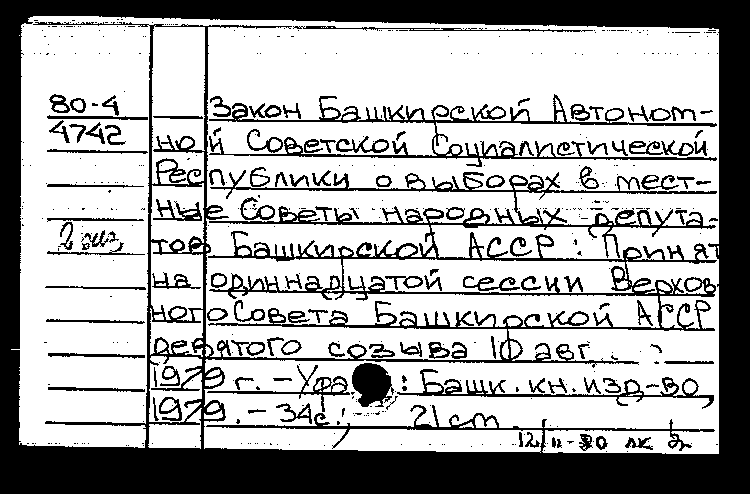 80-4 Закон Башкирской Автоном-
4742 ной Советской Социалистической
Республики о выборах в мест-
ные Советы народных депута-
2 экз. тов Башкирской АССР: Принят
на одиннадцатой сессии Верхов-
ного Совета Башкирской АССР
девятого созыва 10 авг.
1979 г. - Уфа: Башк. кн. изд-во,
1979. - 34с.; 21 cm.
12/II-80